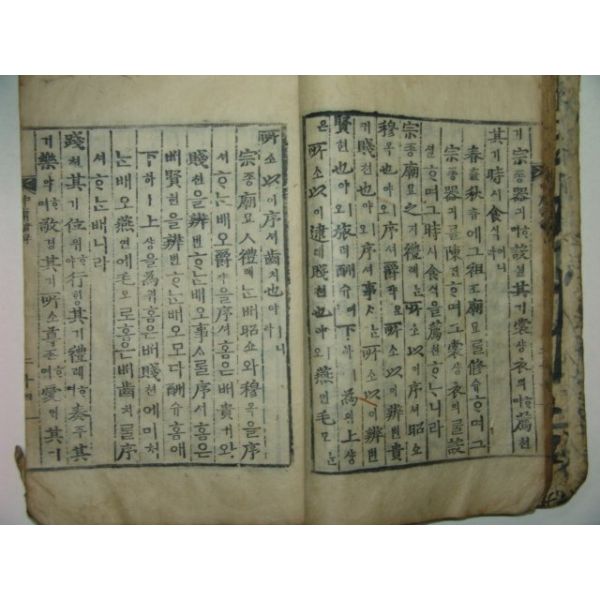 긔宗종器긔며設셜其기裳샹衣의ᄒᆞ며薦쳔
其기時시食식이니라
春츈秋츄에그祖조廟묘ᄅᆞᆯ修슈ᄒᆞ며그
宗종器긔ᄅᆞᆯ陳진ᄒᆞ며그裳샹衣의ᄅᆞᆯ設
셜ᄒᆞ며그時시食식을薦쳔ᄒᆞᄂᆞ니라
宗종廟묘之지禮례ᄂᆞᆫ所소以이序셔昭쇼
穆목也야ㅣ오序셔爵쟉은所소以이辨변貴
귀賤쳔也야ㅣ오序셔事ᄉᆞᄂᆞᆫ所소以이辨변
賢현也야ㅣ오旅려酬슈에下하ㅣ爲위上샹
은所소以이逮톄賤쳔也야ㅣ오燕연毛모ᄂᆞᆫ
所소以이序셔齒치也야ㅣ니라
宗종廟묘人禮례ᄂᆞᆫ배昭쇼와穆목을序
셔ᄒᆞᄂᆞᆫ배오爵쟉을序셔홈은배貴귀와
賤쳔을辨변ᄒᆞᄂᆞᆫ배오事ᄉᆞᄅᆞᆯ序셔홈은
배賢현을辨변ᄒᆞᄂᆞᆫ배오모다酬슈홈애
下하ㅣ上샹을爲위홈은배賤쳔에미처
ᄂᆞᆫ배오燕연에毛모로홈은배齒치ᄅᆞᆯ序
셔ᄒᆞᄂᆞᆫ배니라
踐쳔其기位위ᄒᆞ야行ᄒᆡᆼ其기禮례ᄒᆞ며奏주其
기樂악ᄒᆞ며敬경其기所소尊존ᄒᆞ며愛ᄋᆡ其기